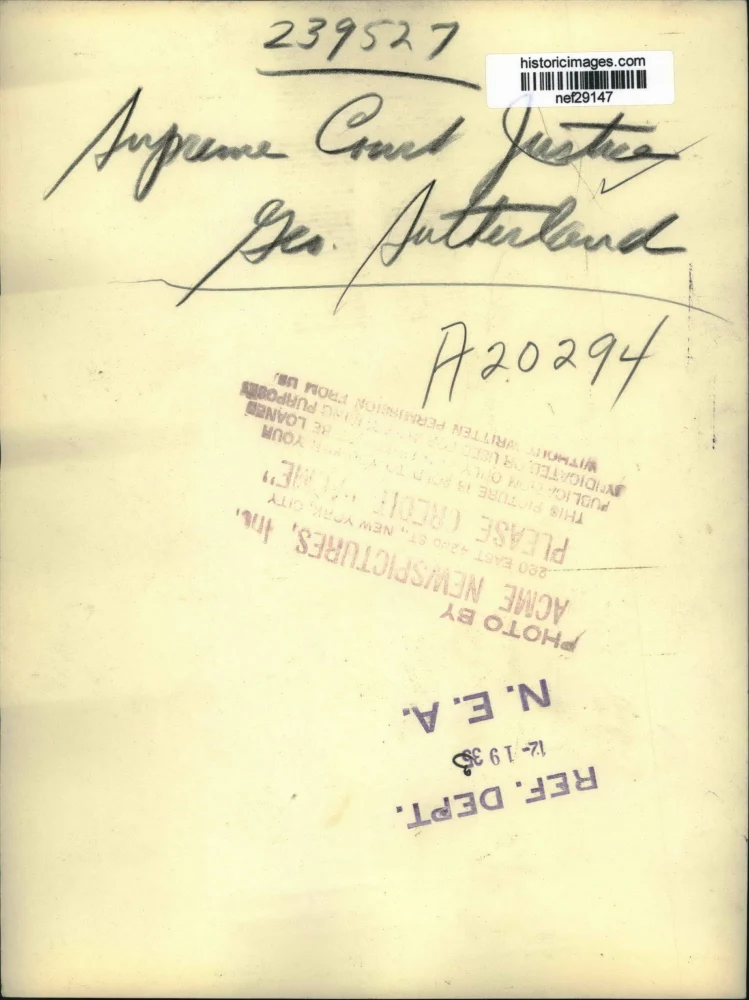 239527
historicimages.com
nef29147
Supreme Court Justice
Geo. Sutherland
A20294
PHOTO BY
ACME NEWSPICTURES, Inc.
220 EAST 42ND ST., NEW YORK CITY
PLEASE CREDIT "ACME"
THIS PICTURE IS SOLD TO YOU FOR YOUR
PUBLICATION ONLY AND MUST NOT BE LOANED
SYNDICATED OR USED FOR ADVERTISING PURPOSES
WITHOUT WRITTEN PERMISSION FROM US.
REF. DEPT.
12-1935
N.E.A.